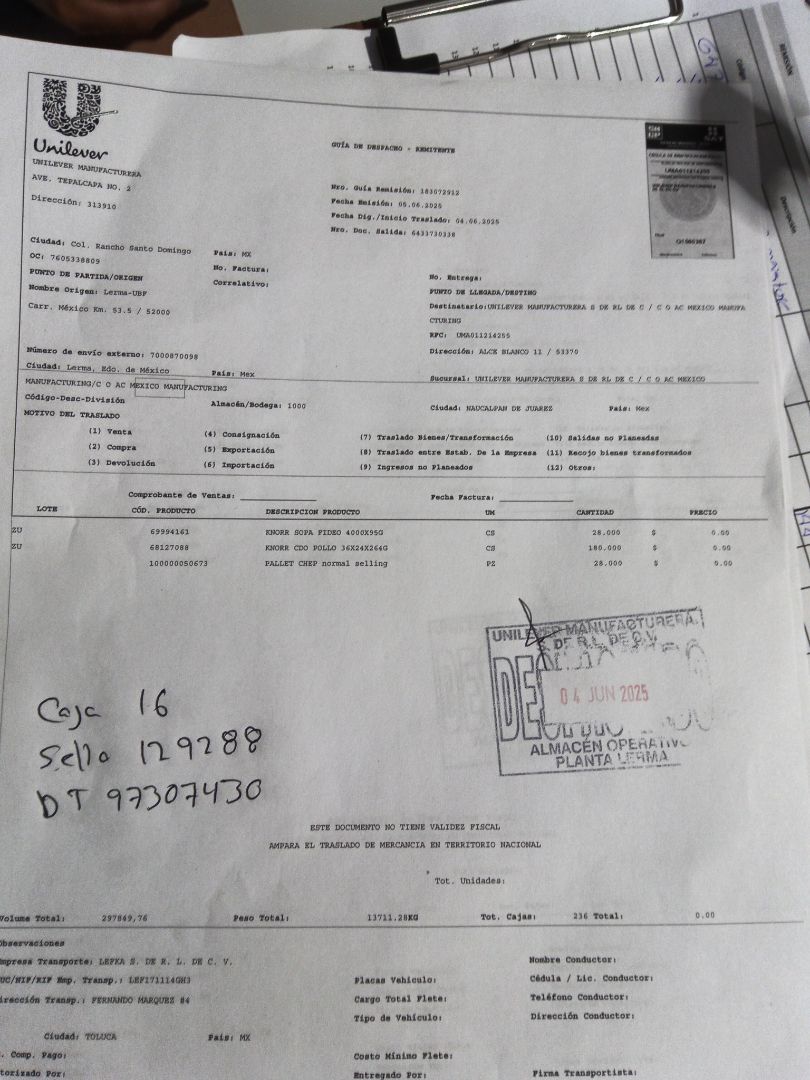 Unilever
UNILEVER MANUFACTURERA
AVE. TEPALCAPA NO. 2
Dirección: 313910
GUÍA DE DESPACHO - REMITENTE
Nro. Guía Remisión: 183072912
Fecha Emisión: 05.06.2025
Fecha Dig./Inicio Traslado: 04.06.2025
Nro. Doc. Salida: 6433730338
UMA011214255
Ciudad: Col. Rancho Santo Domingo País: MX
OC: 7605338809 No. Factura:
PUNTO DE PARTIDA/ORIGEN Correlativo:
Nombre Origen: Lerma-UBF
Carr. México Km. 53.5 / 52000
No. Entrega:
PUNTO DE LLEGADA/DESTINO
Destinatario:UNILEVER MANUFACTURERA S DE RL DE C / C O AC MEXICO MANUFA
CTURING
RFC: UMA011214255
Dirección: ALCE BLANCO 11 / 53370
Número de envío externo: 7000870098
Ciudad: Lerma, Edo. de México País: Mex
Sucursal: UNILEVER MANUFACTURERA S DE RL DE C / C O AC MEXICO
MANUFACTURING/C O AC MEXICO MANUFACTURING
Código-Desc-División Almacén/Bodega: 1000 Ciudad: NAUCALPAN DE JUAREZ País: Mex
MOTIVO DEL TRASLADO
(1) Venta (4) Consignación (7) Traslado Bienes/Transformación (10) Salidas no Planeadas
(2) Compra (5) Exportación (8) Traslado entre Estab. De la Empresa (11) Recojo bienes transformados
(3) Devolución (6) Importación (9) Ingresos no Planeados (12) Otros:
Comprobante de Ventas: Fecha Factura:
LOTE CÓD. PRODUCTO DESCRIPCION PRODUCTO UM CANTIDAD PRECIO
ZU 69994161 KNORR SOPA FIDEO 4000X95G CS 28.000 $ 0.00
ZU 68127088 KNORR CDO POLLO 36X24X264G CS 180.000 $ 0.00
100000050673 PALLET CHEP normal selling PZ 28.000 $ 0.00
UNILEVER MANUFACTURERA
S. DE R.L. DE C.V.
04 JUN 2025
ALMACÉN OPERATIVO
PLANTA LERMA
Caja 16
Sello 129288
DT 97307430
ESTE DOCUMENTO NO TIENE VALIDEZ FISCAL
AMPARA EL TRASLADO DE MERCANCIA EN TERRITORIO NACIONAL
Tot. Unidades:
Volume Total: 297849,76 Peso Total: 13711.28KG Tot. Cajas: 236 Total: 0.00
Observaciones
Empresa Transporte: LEFKA S. DE R. L. DE C. V. Nombre Conductor:
RUC/NIF/RIF Emp. Transp.: LEF171114GH3 Placas Vehículo: Cédula / Lic. Conductor:
Dirección Transp.: FERNANDO MARQUEZ 84 Cargo Total Flete: Teléfono Conductor:
Tipo de Vehículo: Dirección Conductor:
Ciudad: TOLUCA País: MX
. Comp. Pago: Costo Mínimo Flete:
torizado Por: Entregado Por: Firma Transportista: